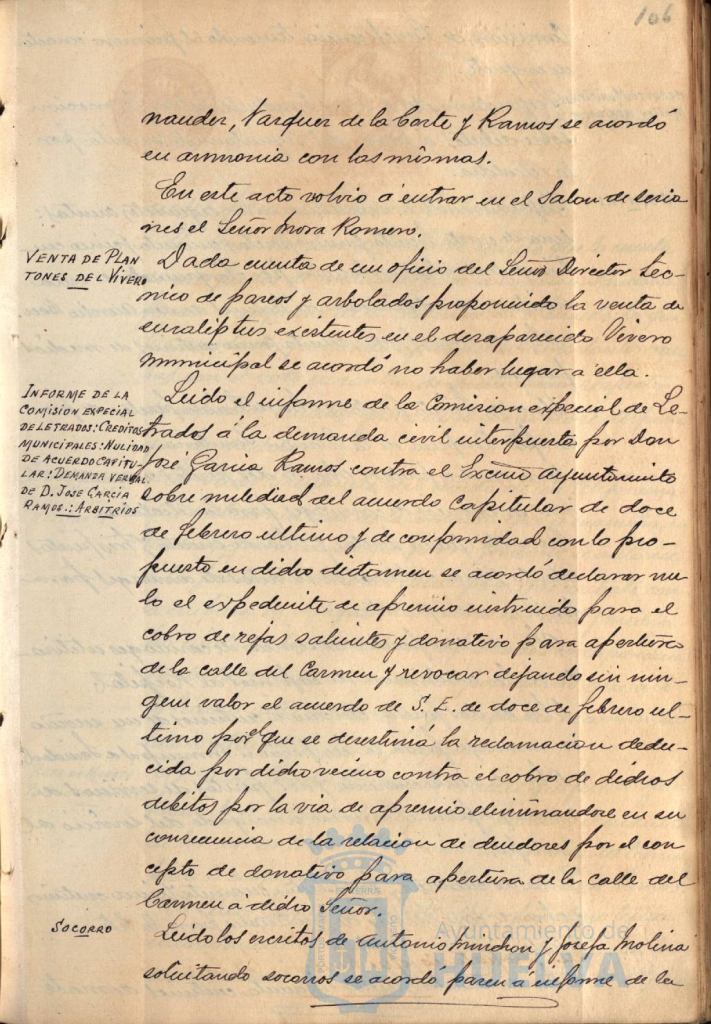 106
nandez, Vazquez de la Corte y Ramos se acordó
en armonia con las mismas.
En este acto volvio á entrar en el Salon de sesio
nes el Señor Mora Romero.
VENTA DE PLAN
TONES DEL VIVERO
Dada cuenta de un oficio del Señor Director tec-
nico de paseos y arbolados proponiendo la venta de
eucaliptus existentes en el desaparecido Vivero
municipal se acordó no haber lugar a ella.
INFORME DE LA
COMISION EXPECIAL
DE LETRADOS: CREDITOS
MUNICIPALES: NULIDAD
DE ACUERDO CAPITU-
LAR: DEMANDA VERBAL
DE D. JOSE GARCIA
RAMOS.: ARBITRIOS
Leido el informe de la Comision especial de Le-
trados á la demanda civil interpuesta por Don
José Garcia Ramos contra el Excmo Ayuntamiento
sobre nulidad del acuerdo Capitular de doce
de febrero ultimo y de conformidad con lo pro-
puesto en dicho dictamen se acordó declarar nu
lo el expediente de apremio instruido para el
cobro de rejas salientes y donativo para apertura
de la calle del Carmen y revocar dejando sin nin-
gun valor el acuerdo de S. E. de doce de febrero ul-
timo por el que se desestimá la reclamacion dedu-
cida por dicho vecino contra el cobro de dichos
debitos por la via de apremio eliminandose en su
consecuencia de la relacion de deudores por el con
cepto de donativo para apertura de la calle del
Carmen á dicho Señor.
SOCORRO
Leidos los escritos de Antonio Minchon y Josefa Molina
solicitando socorros se acordó pasen a informe de la
Ayuntamiento de
HUELVA